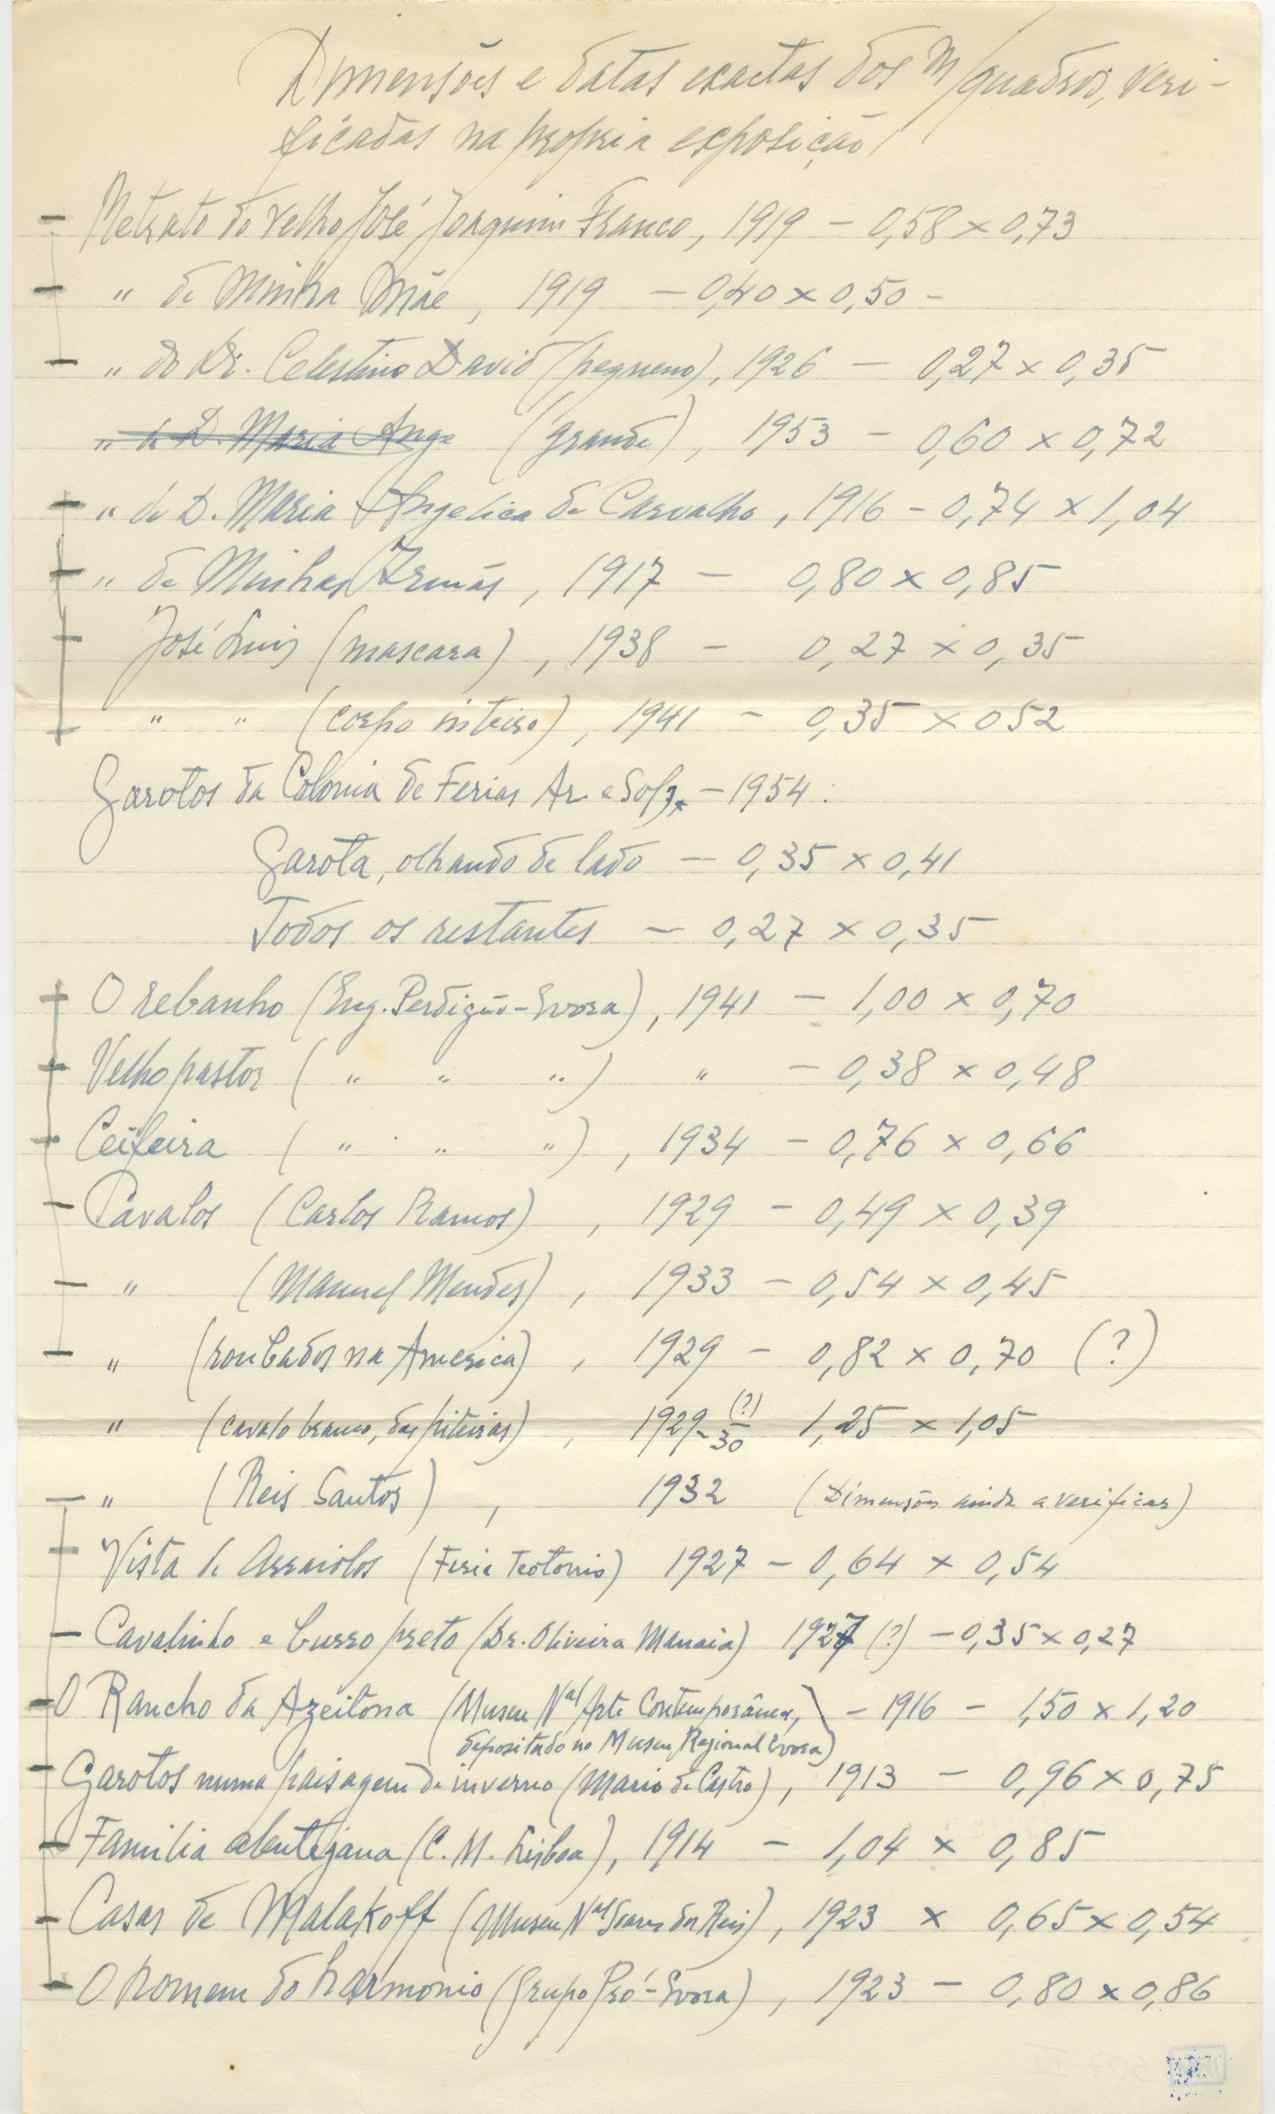 Dimensões e datas exactas dos m/quadros, veri-
ficadas na propria exposição
— Retrato do velho José Joaquim Franco, 1919 — 0,58 x 0,73
— " de Minha Mãe, 1919 — 0,40 x 0,50 -
— " do Dr. Celestino David (pequeno), 1926 — 0,27 x 0,35
" de D. Maria Ange (grande), 1953 — 0,60 x 0,72
— " de D. Maria Angelica de Carvalho, 1916 - 0,74 x 1,04
— " de Minhas Irmãs, 1917 — 0,80 x 0,85
— José Luis (mascara), 1938 - 0,27 x 0,35
— " " (corpo inteiro), 1941 - 0,35 x 052
Garotos da Colonia de Ferias Ar e Sol — 1954:
Garota, olhando de lado — 0,35 x 0,41
Todos os restantes — 0,27 x 0,35
— O rebanho (Eng. Perdigão-Evora), 1941 — 1,00 x 0,70
— Velho pastor ( " " " ) " — 0,38 x 0,48
— Ceifeira ( " " " ), 1934 - 0,76 x 0,66
— Cavalos (Carlos Ramos), 1929 - 0,49 x 0,39
— " (Manuel Mendes), 1933 - 0,54 x 0,45
— " (roubados na America), 1929 - 0,82 x 0,70 (?)
" (cavalo branco, das piteiras), 1929-30 (?) 1,25 x 1,05
— " (Reis Santos), 1932 (Dimensões ainda a verificar)
— Vista de Arraiolos (Teotonio) 1927 - 0,64 x 0,54
— Cavalinho e burro preto (Dr. Oliveira Manaia) 1927 (?) — 0,35 x 0,27
— O Rancho da Azeitona (Museu Nal Arte Contemporânea, — 1916 — 1,50 x 1,20
depositado no Museu Regional Evora)
— Garotos numa paisagem de inverno (Mario de Castro), 1913 — 0,96 x 0,75
— Familia alentejana (C. M. Lisboa), 1914 — 1,04 x 0,85
— Casas de Malakoff (Museu Nal Soares dos Reis), 1923 x 0,65 x 0,54
— O homem do harmonio (Grupo Pró-Evora), 1923 — 0,80 x 0,86